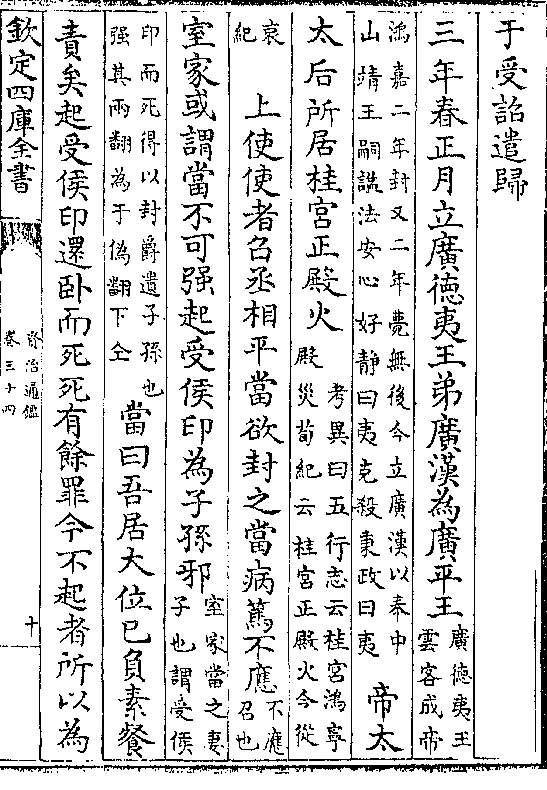 于受詔遣歸
三年春正月立廣德夷王弟廣漢為廣平王廣德夷王雲客成帝
鴻嘉二年封又二年薨無後今立廣漢以奉中山靖王嗣諡法安心好静曰夷克殺秉政曰夷帝太
太后所居桂宮正殿火考異曰五行志云桂宮鴻寧殿災荀紀云桂宮正殿火今從
哀紀上使使者召丞相平當欲封之當病篤不應不應召也
室家或謂當不可强起受侯印為子孫邪室家當之妻子也謂受侯
印而死得以封爵遺子孫也强其兩翻為于偽翻下仝當曰吾居大位已負素餐
責矣起受侯印還卧而死死有餘罪今不起者所以為
欽定四庫全書
資治通鑑
卷三十四
十